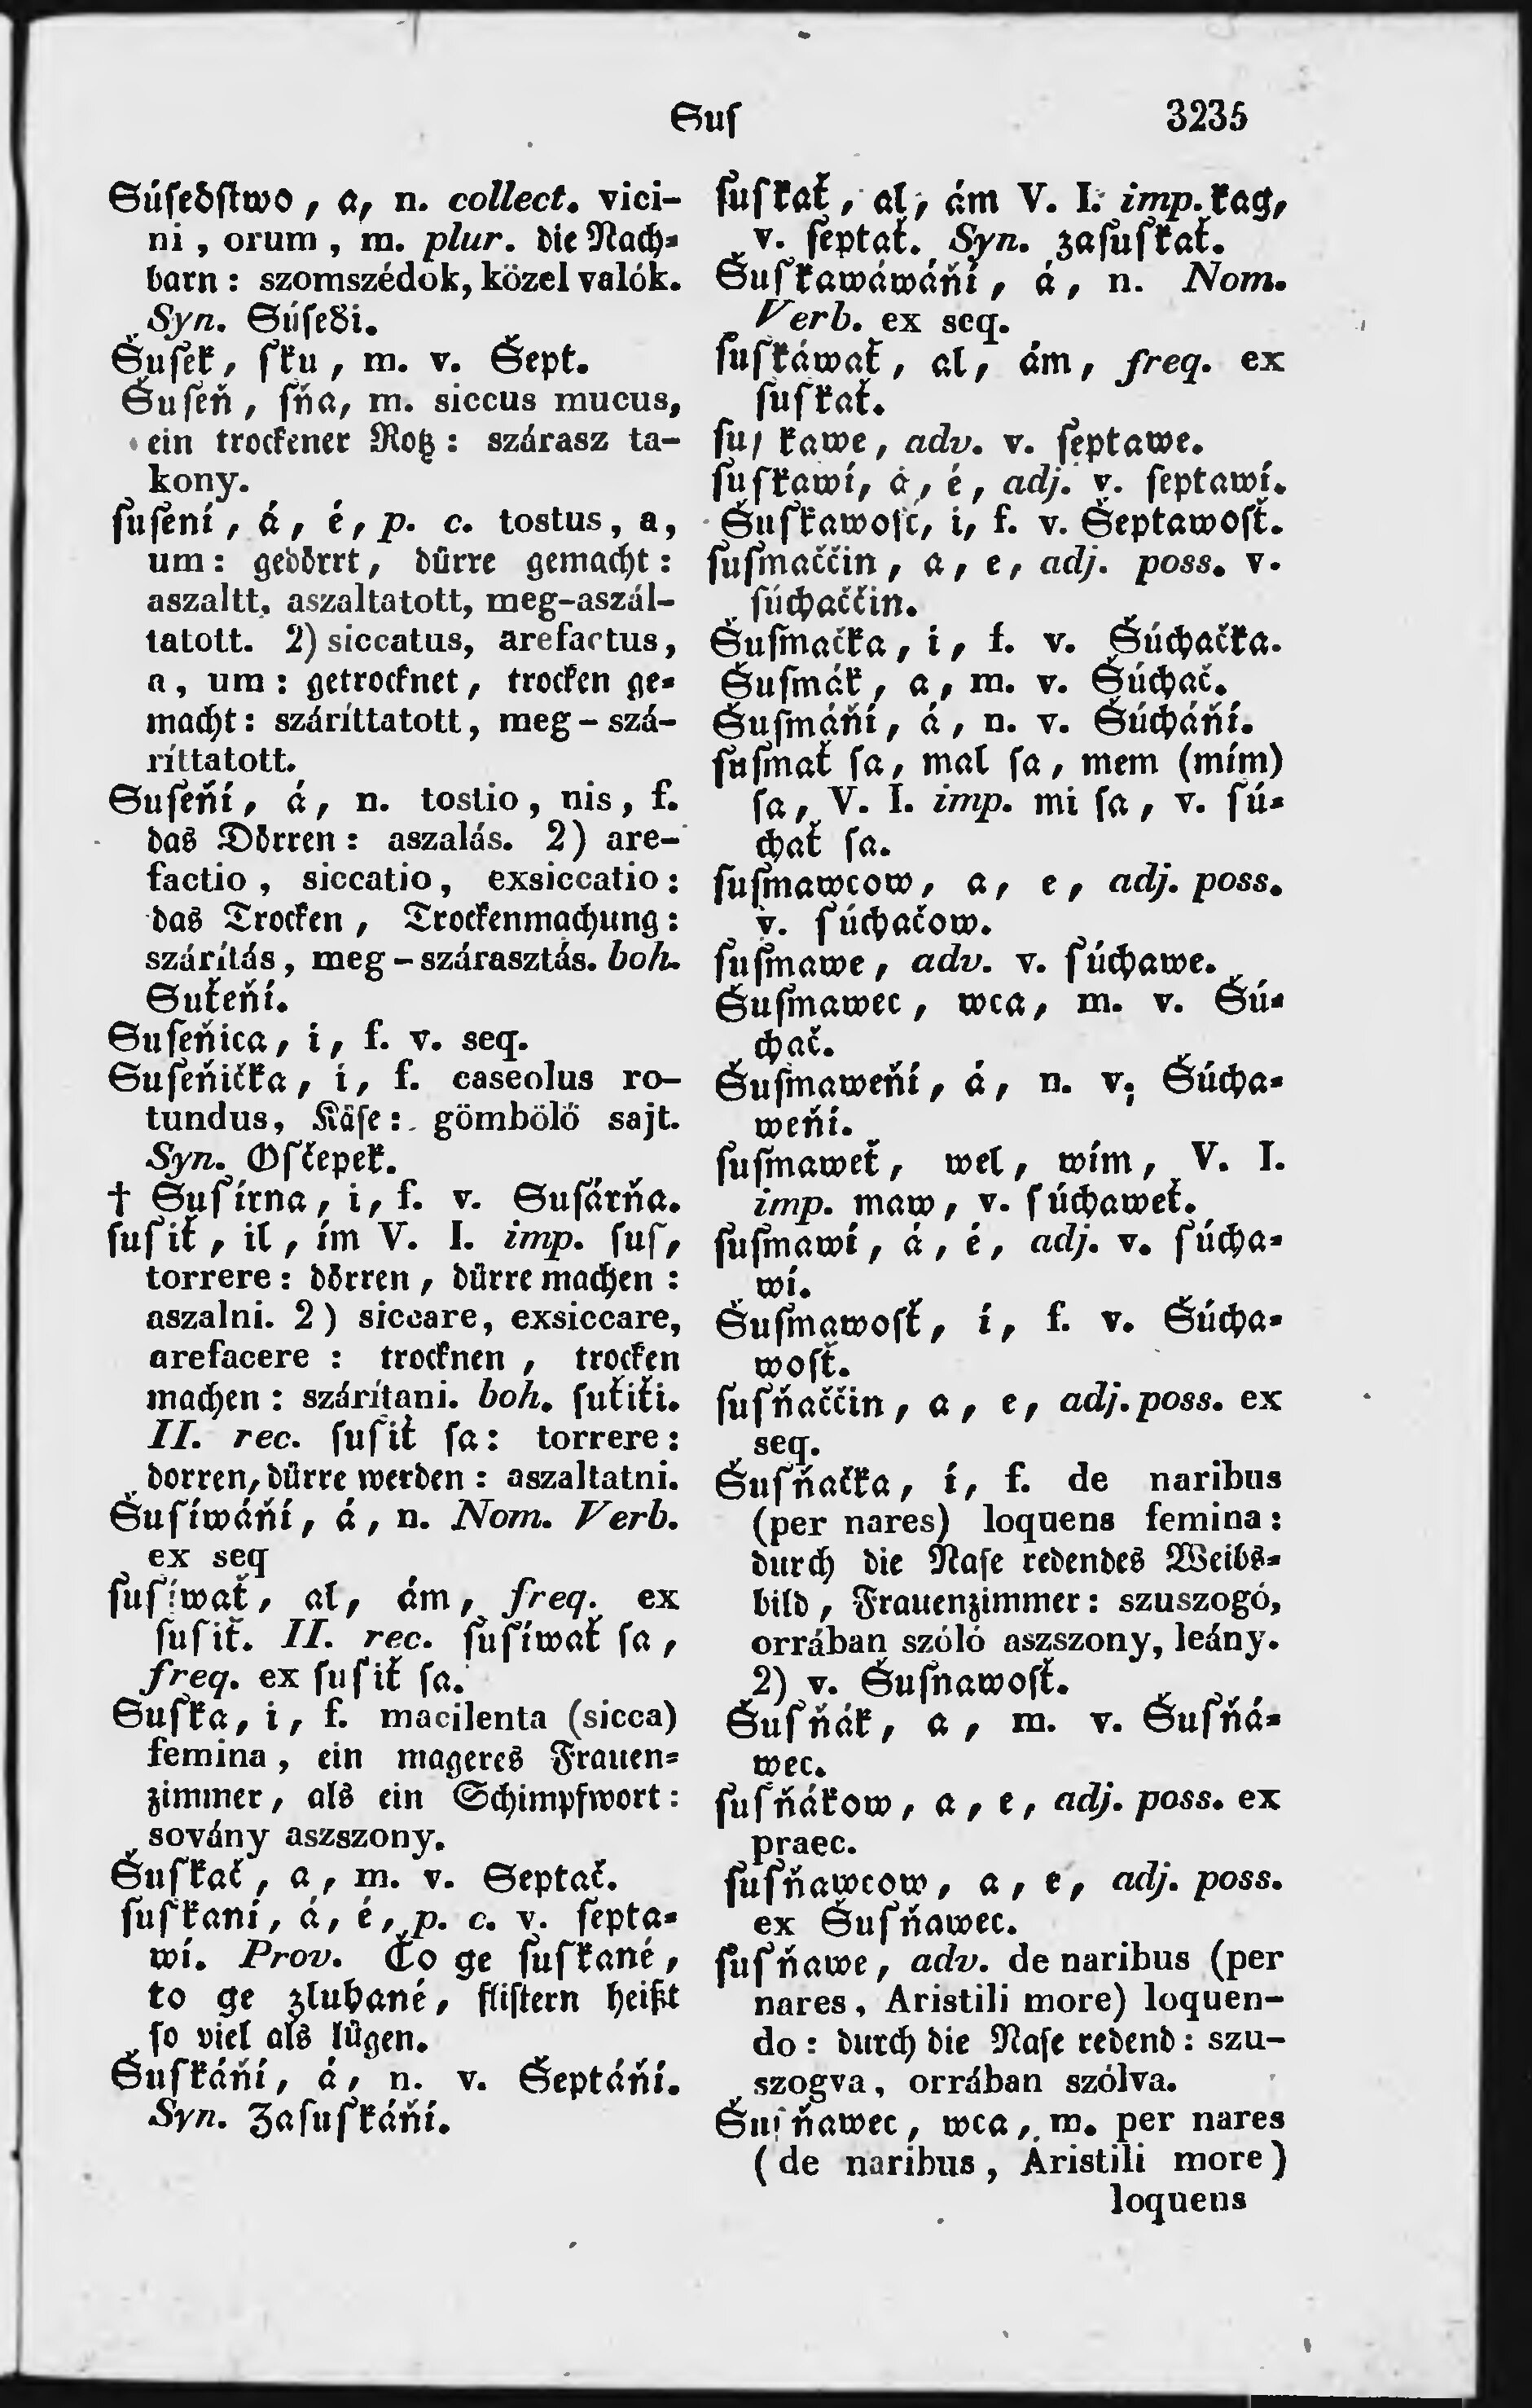 Suſ
3235
Súſedſtwo, a, n. collect. vici-
ni, orum, m. plur. die Nach-
barn: szomszédok, közel valók.
Syn. Súſedi.
Šuſek, ſku, m. v. Šept.
Šuſeň, ſňa, m. siccus mucus,
ein trockener Rotz: szárasz ta-
kony.
ſuſení, á, é, p. c. tostus, a,
um: gedörrt, dürre gemacht:
aszaltt, aszaltatott, meg-aszál-
tatott. 2) siccatus, arefactus,
a, um: getrocknet, trocken ge-
macht: száríttatott, meg-szá-
ríttatott.
Suſeňí, á, n. tostio, nis, f.
das Dörren: aszalás. 2) are-
factio, siccatio, exsiccatio:
das Trocken, Trockenmachung:
szárítás, meg-szárasztás. boh.
Suťeňí.
Suſeňica, i, f. v. seq.
Suſeňička, i, f. caseolus ro-
tundus, Käſe: gömbölő sajt.
Syn. Oſčepek.
† Suſírna, i, f. v. Suſárňa.
ſuſiť, il, ím V. I. imp. ſuſ,
torrere: dörren, dürre machen:
aszalni. 2) siccare, exsiccare,
arefacere: trocknen, trocken
machen: szárítani. boh. ſuťiťi.
II. rec. ſuſiť ſa: torrere:
dorren, dürre werden: aszaltatni.
Šuſíwáňí, á, n. Nom. Verb.
ex seq
ſuſíwať, al, ám, freq. ex
ſuſiť. II. rec. ſuſíwať ſa,
freq. ex ſuſiť ſa.
Suſka, i, f. macilenta (sicca)
femina, ein mageres Frauen-
zimmer, als ein Schimpfwort:
sovány aszszony.
Šuſkač, a, m. v. Septač.
ſuſkaní, á, é, p. c. v. ſepta-
wí. Prov. Čo ge ſuſkané,
to ge zluhané, fliſtern heißt
ſo viel als lügen.
Šuſkáňí, á, n. v. Šeptáňí.
Syn. Zaſuſkáňí.
ſuſkať, al, ám V. I. imp. kag,
v. ſeptať. Syn. zaſuſkať.
Šuſkawáwáňí, á, n. Nom.
Verb. ex seq.
ſuſkáwať, al, ám, freq. ex
ſuſkať.
ſuſkawe, adv. v. ſeptawe.
ſuſkawí, á, é, adj. v. ſeptawí.
Šuſkawosť, i, f. v. Šeptawoſť.
ſuſmaččin, a, e, adj. poss. v.
ſúchaččin.
Šuſmačka, i, f. v. Šúchačka.
Šuſmák, a, m. v. Šúchač.
Šuſmáňí, á, n. v. Šúcháňí.
ſuſmať ſa, mal ſa, mem (mím)
ſa, V. I. imp. mi ſa, v. ſú-
chať ſa.
ſuſmawcow, a, e, adj. poss.
v. ſúchačow.
ſuſmawe, adv. v. ſúchawe.
Šuſmawec, wca, m. v. Šú-
chač.
Šuſmaweňí, á, n. v. Šúcha-
weňí.
ſuſmaweť, wel, wím, V. I.
imp. maw, v. ſúchaweť.
ſuſmawí, á, é, adj. v. ſúcha-
wí.
Šuſmawoſť, i, f. v. Šúcha-
woſť.
ſuſňaččin, a, e, adj. poss. ex
seq.
Šuſňačka, i, f. de naribus
(per nares) loquens femina:
durch die Naſe redendes Weibs-
bild, Frauenzimmer: szuszogó,
orrában szóló aszszony, leány.
2) v. Šuſnawoſť.
Šuſňák, a, m. v. Šuſňá-
wec.
ſuſňákow, a, e, adj. poss. ex
praec.
ſuſňawcow, a, e, adj. poss.
ex Šuſňawec.
ſuſňawe, adv. de naribus (per
nares, Aristili more) loquen-
do: durch die Naſe redend: szu-
szogva, orrában szólva.
Šuſňawec, wca, m. per nares
(de naribus, Aristili more)
loquens